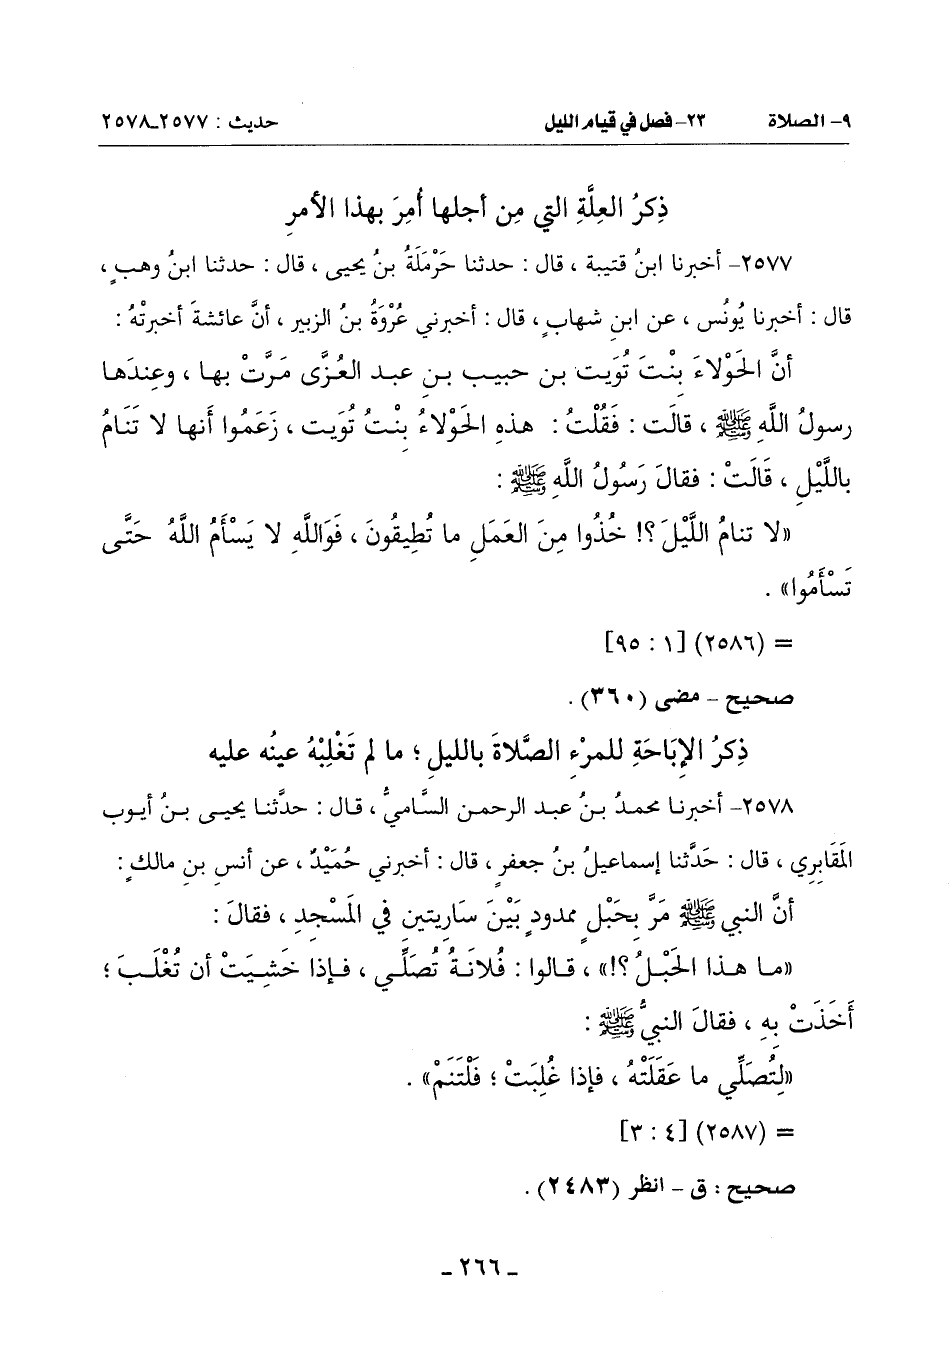 ٩- الصلاة ٢٣- فصل في قيام الليل حديث : ٢٥٧٧-٢٥٧٨
ذِكرُ العِلَّةِ التي مِن أجلها أُمِرَ بهذا الأمرِ
٢٥٧٧- أخبرنا ابنُ قتيبة ، قال : حدثنا حَرْمَلَةُ بنُ يحيى ، قال : حدثنا ابنُ وهبٍ ،
قال : أخبرنا يُونُس ، عن ابنِ شهابٍ ، قال : أخبرني عُرْوَةُ بنُ الزبير ، أنَّ عائشةَ أخبرتْهُ :
أنَّ الحَوْلاءَ بِنْتَ تُوَيت بن حبيب بن عبد العُزَّى مَرَّتْ بها ، وعِندَها
رسولُ اللَّهِ ﷺ ، قالَت : فَقُلْتُ : هذهِ الحَوْلاءُ بِنْتُ تُوَيت ، زَعَمُوا أنها لا تَنَامُ
باللَّيْلِ ، قَالَتْ : فقالَ رَسُولُ اللَّهِ ﷺ :
«لا تنامُ اللَّيْلَ ؟! خُذُوا مِنَ العَمَلِ ما تُطِيقُونَ ، فَوَاللَّهِ لا يَسْأَمُ اللَّهُ حَتَّى
تَسْأَمُوا» .
= (٢٥٨٦) [١ : ٩٥]
صحيح - مضى (٣٦٠) .
ذِكرُ الإِبَاحَةِ للمرْءِ الصَّلاةَ بالليلِ ؛ ما لم تَغْلِبْهُ عينُه عليه
٢٥٧٨- أخبرنا محمدُ بنُ عبد الرحمن السَّاميُّ ، قال : حدَّثنا يحيى بنُ أيوب
المَقَابِرِي ، قال : حَدَّثنا إسماعيلُ بنُ جعفرٍ ، قال : أخبرني حُمَيْدٌ ، عن أنسِ بنِ مالكٍ :
أنَّ النبي ﷺ مَرَّ بِحَبْلٍ ممدودٍ بَيْنَ سَاريتين في المَسْجدِ ، فقالَ :
«ما هذا الحَبْلُ ؟!» ، قالوا : فُلانَةُ تُصَلِّي ، فإذا خَشِيَتْ أن تُغْلَبَ ؛
أَخَذَتْ بِهِ ، فقالَ النبيُّ ﷺ :
«لِتُصَلِّي ما عَقَلَتْهُ ، فإذا غُلِبَتْ ؛ فَلْتَنَمْ» .
= (٢٥٨٧) [٤ : ٣]
صحيح : ق - انظر (٢٤٨٣) .
ـ ٢٦٦ ـ